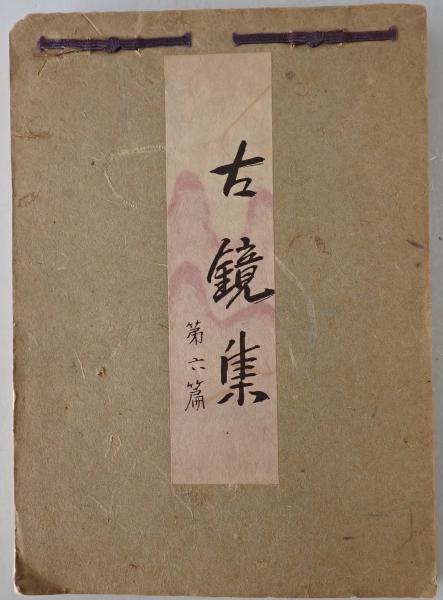 古鏡集
第六篇